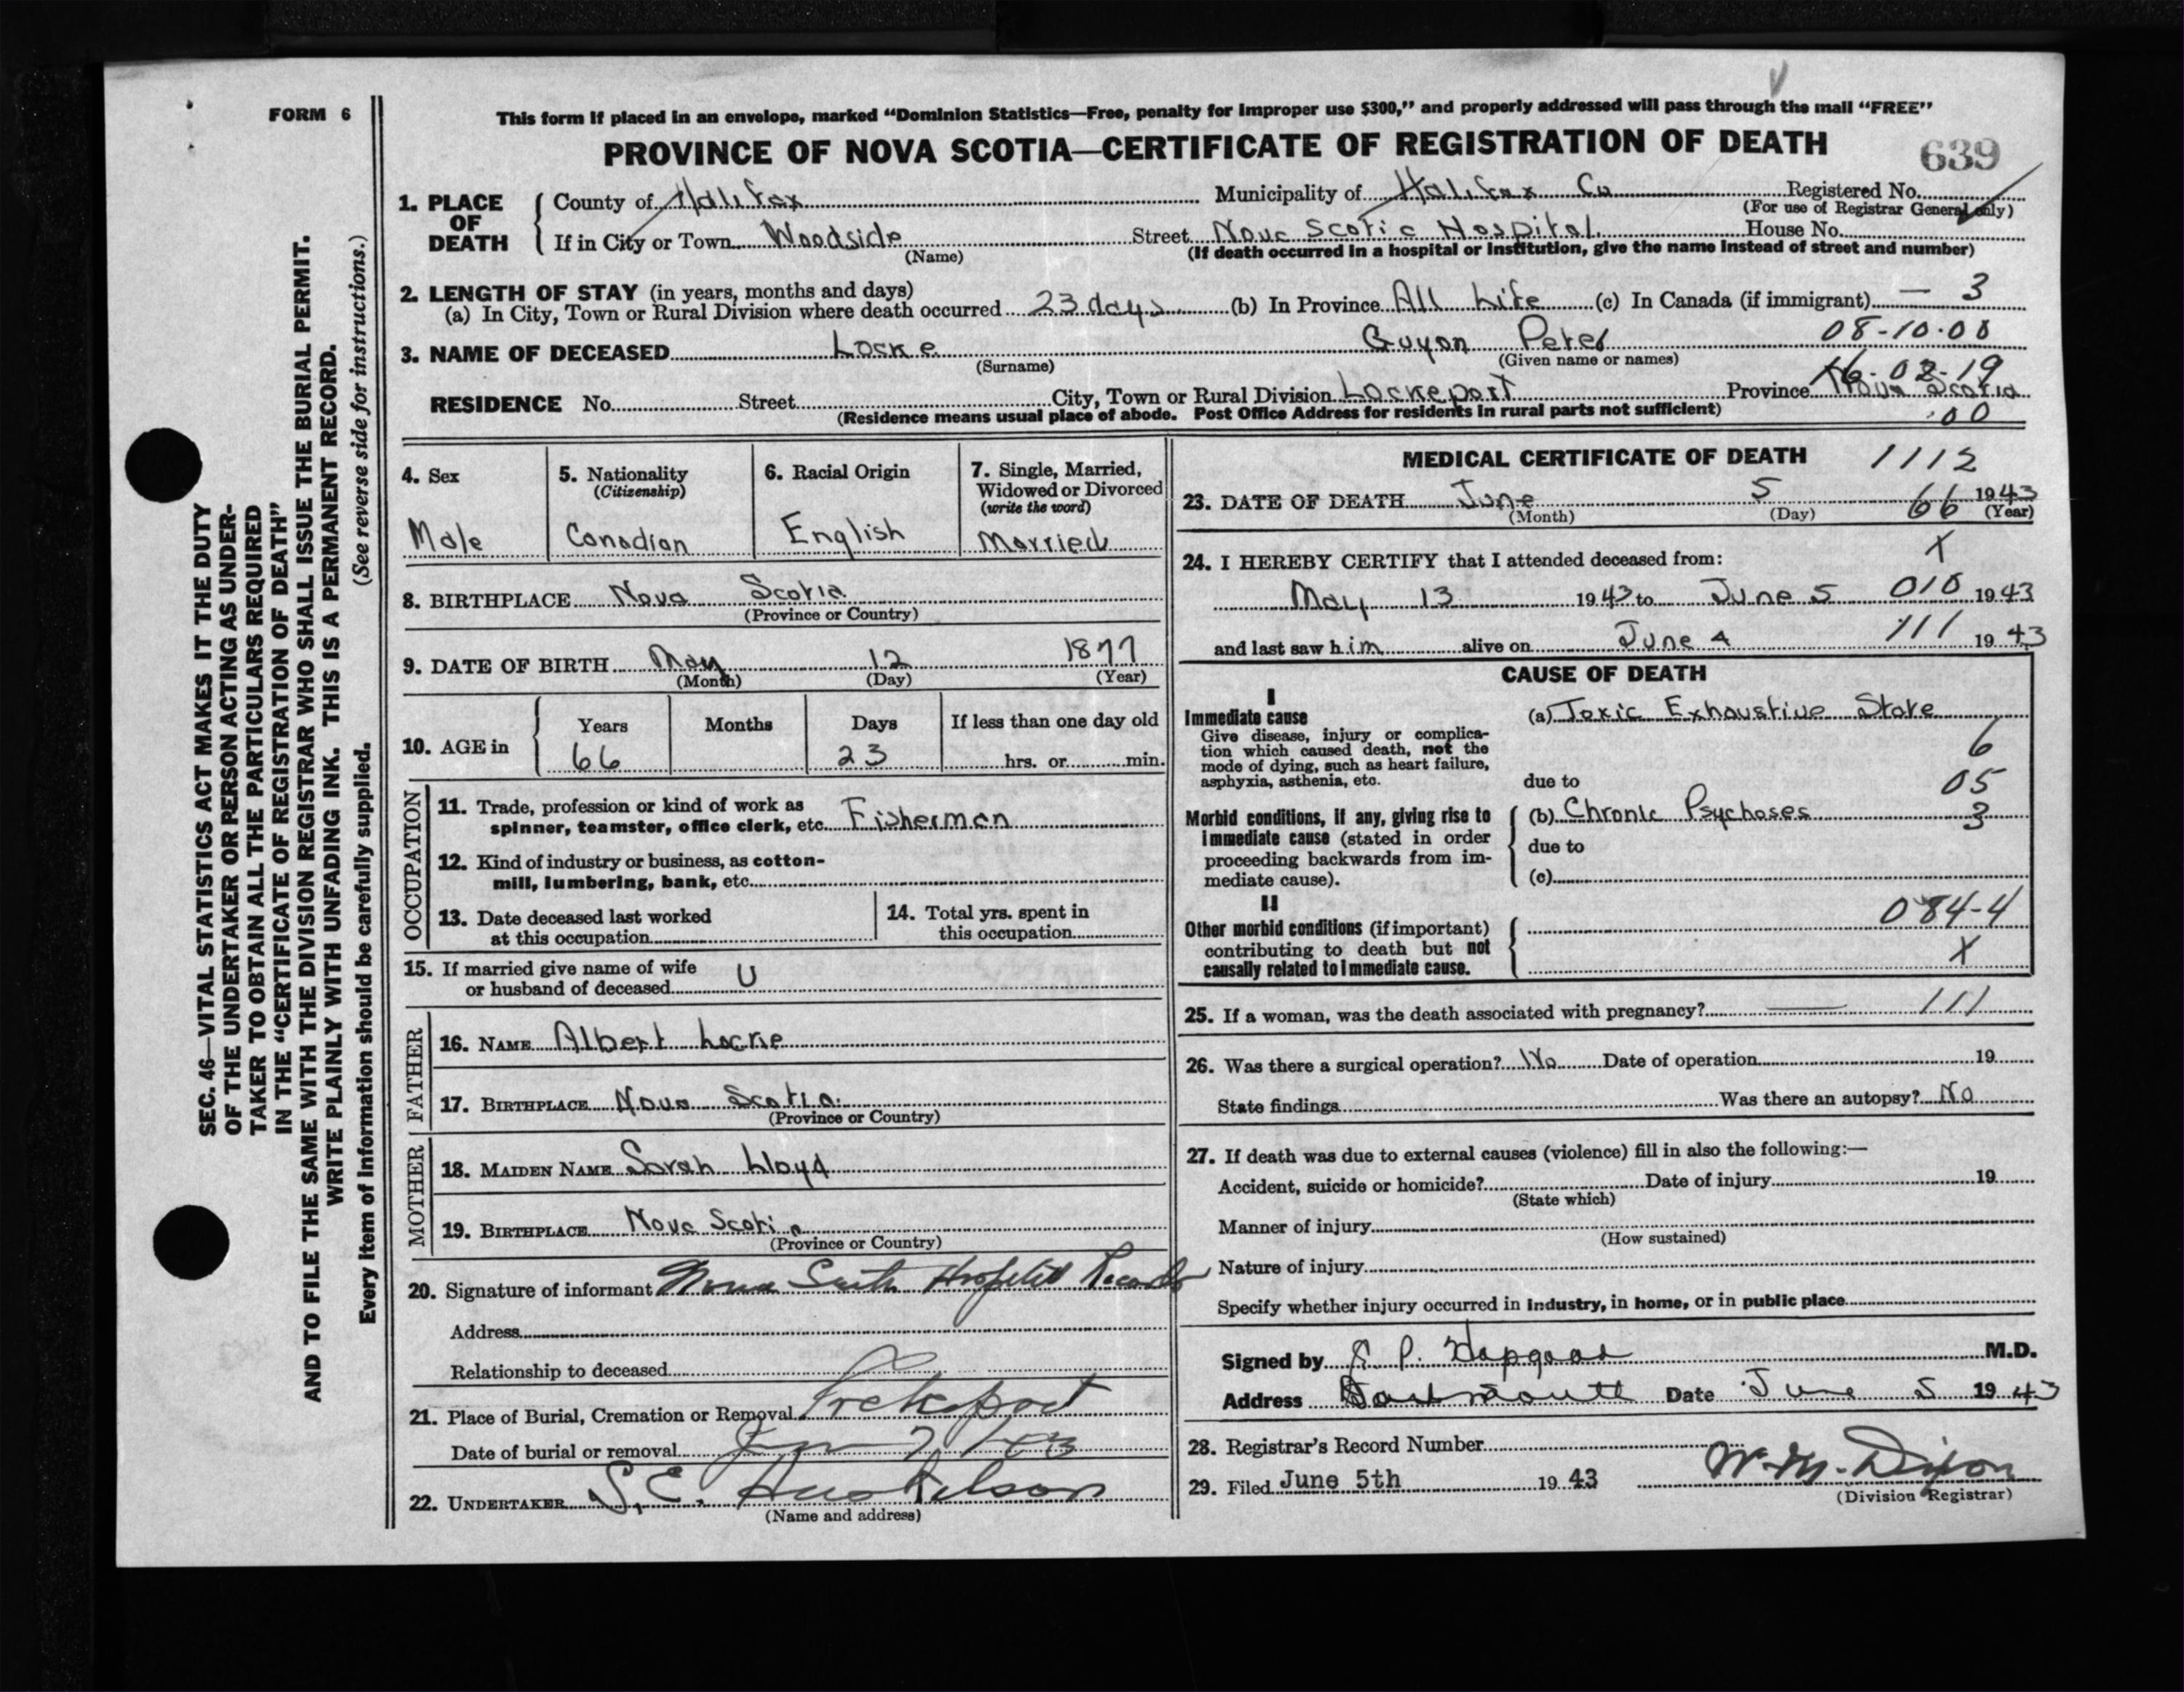 FORM 6
This form if placed in an envelope, marked "Dominion Statistics—Free, penalty for improper use $300," and properly addressed will pass through the mail "FREE"
PROVINCE OF NOVA SCOTIA—CERTIFICATE OF REGISTRATION OF DEATH
639
1. PLACE OF DEATH
County of Halifax Municipality of Halifax Co Registered No.
(For use of Registrar General only)
If in City or Town Woodside Street Nova Scotia Hospital. House No.
(Name) (If death occurred in a hospital or institution, give the name instead of street and number)
2. LENGTH OF STAY (in years, months and days)
(a) In City, Town or Rural Division where death occurred 23 days (b) In Province All Life (c) In Canada (if immigrant) — 3
08-10-00
3. NAME OF DECEASED Locke Guyon Peter
(Surname) (Given name or names)
16-02-19
RESIDENCE No. Street City, Town or Rural Division Lockeport Province Nova Scotia
(Residence means usual place of abode. Post Office Address for residents in rural parts not sufficient) .00
4. Sex
Male
5. Nationality
(Citizenship)
Canadian
6. Racial Origin
English
7. Single, Married,
Widowed or Divorced
(write the word)
Married
8. BIRTHPLACE Nova Scotia
(Province or Country)
9. DATE OF BIRTH May 12 1877
(Month) (Day) (Year)
10. AGE in
Years Months Days If less than one day old
66 23 hrs. or min.
OCCUPATION
11. Trade, profession or kind of work as
spinner, teamster, office clerk, etc. Fisherman
12. Kind of industry or business, as cotton-
mill, lumbering, bank, etc.
13. Date deceased last worked
at this occupation
14. Total yrs. spent in
this occupation
15. If married give name of wife
or husband of deceased U
FATHER
16. NAME Albert Locke
17. BIRTHPLACE Nova Scotia
(Province or Country)
MOTHER
18. MAIDEN NAME Sarah Lloyd
19. BIRTHPLACE Nova Scotia
(Province or Country)
20. Signature of informant Nova Scotia Hospital Records
Address
Relationship to deceased
21. Place of Burial, Cremation or Removal Lockeport
Date of burial or removal June 7/43
22. UNDERTAKER S. E.
(Name and address)
MEDICAL CERTIFICATE OF DEATH 1112
23. DATE OF DEATH June 5 66 1943
(Month) (Day) (Year)
X
24. I HEREBY CERTIFY that I attended deceased from:
May 13 1943 to June 5 010 1943
and last saw him alive on June 4 111 1943
CAUSE OF DEATH
I
Immediate cause
Give disease, injury or complica-
tion which caused death, not the
mode of dying, such as heart failure,
asphyxia, asthenia, etc.
(a) Toxic Exhaustive State
6
due to 05
Morbid conditions, if any, giving rise to
immediate cause (stated in order
proceeding backwards from im-
mediate cause).
(b) Chronic Psychoses 3
due to
(c)
II
Other morbid conditions (if important)
contributing to death but not
causally related to immediate cause.
084-4
X
25. If a woman, was the death associated with pregnancy? — 111
26. Was there a surgical operation? No Date of operation 19
State findings Was there an autopsy? No
27. If death was due to external causes (violence) fill in also the following:—
Accident, suicide or homicide? Date of injury 19
(State which)
Manner of injury
(How sustained)
Nature of injury
Specify whether injury occurred in industry, in home, or in public place
Signed by P. Hapgood M.D.
Address Dartmouth Date June 5 1943
28. Registrar's Record Number
29. Filed June 5th 1943 W. M. Dixon
(Division Registrar)
SEC. 46—VITAL STATISTICS ACT MAKES IT THE DUTY
OF THE UNDERTAKER OR PERSON ACTING AS UNDER-
TAKER TO OBTAIN ALL THE PARTICULARS REQUIRED
IN THE "CERTIFICATE OF REGISTRATION OF DEATH"
AND TO FILE THE SAME WITH THE DIVISION REGISTRAR WHO SHALL ISSUE THE BURIAL PERMIT.
WRITE PLAINLY WITH UNFADING INK. THIS IS A PERMANENT RECORD.
Every item of information should be carefully supplied. (See reverse side for instructions.)